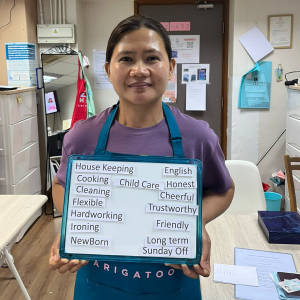 House Keeping English
Cooking Child Care Honest
Cleaning Cheerful
Flexible Trustworthy
Hardworking Friendly
Ironing Long term
NewBorn Sunday Off
ARIGATO